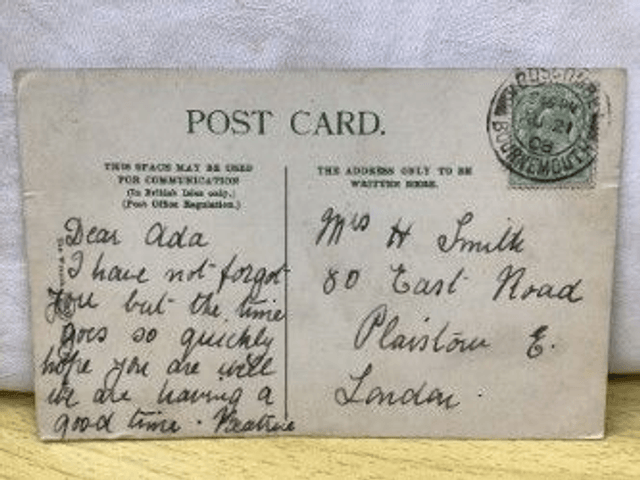 POST CARD.
THIS SPACE MAY BE USED
FOR COMMUNICATION
(In British Isles only.)
(Post Office Regulation.)
THE ADDRESS ONLY TO BE
WRITTEN HERE.
BOURNEMOUTH
JY 21
08
Dear Ada
I have not forgot
you but the time
goes so quickly
hope you are well
we are having a
good time. Beatrice
Mrs H Smith
80 East Road
Plaistow E.
London.